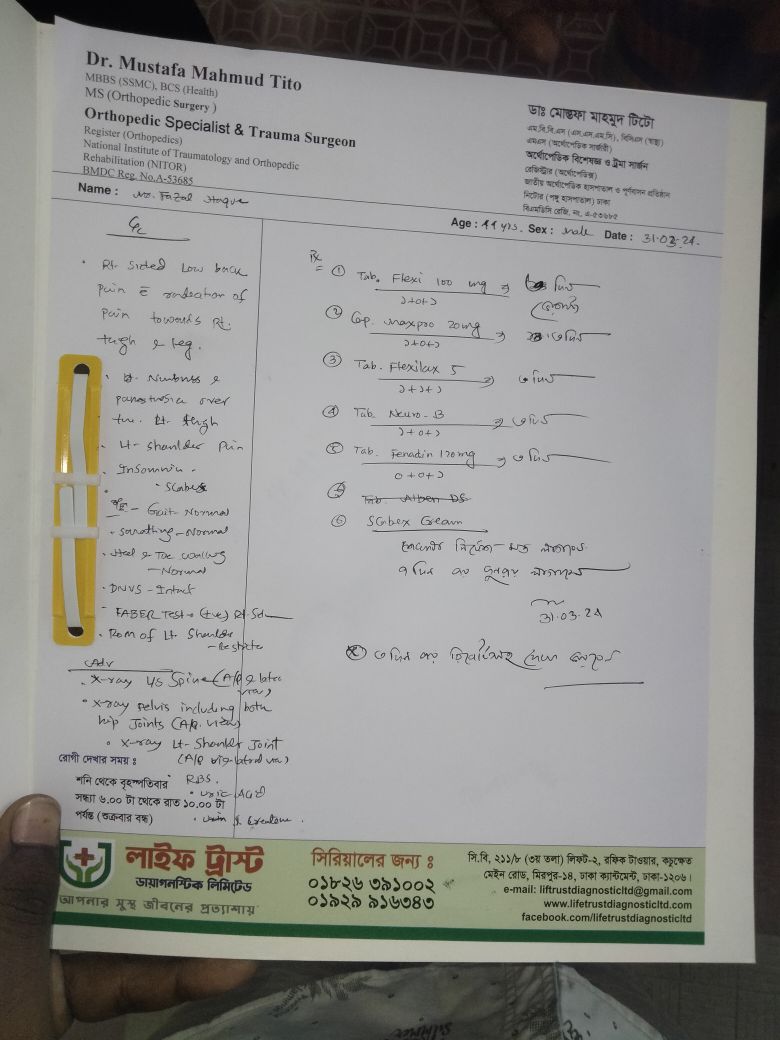 Dr. Mustafa Mahmud Tito
MBBS (SSMC), BCS (Health)
MS (Orthopedic Surgery )
Orthopedic Specialist & Trauma Surgeon
Register (Orthopedics)
National Institute of Traumatology and Orthopedic
Rehabilitation (NITOR)
BMDC Reg. No.A-53685
ডাঃ মোস্তফা মাহমুদ টিটো
এম.বি.বি.এস (এস.এস.এম.সি), বিসিএস (স্বাস্থ্য)
এমএস (অর্থোপেডিক সার্জারী)
অর্থোপেডিক বিশেষজ্ঞ ও ট্রমা সার্জন
রেজিস্ট্রার (অর্থোপেডিক্স)
জাতীয় অর্থোপেডিক হাসপাতাল ও পূর্নবাসন প্রতিষ্ঠান
নিটোর (পঙ্গু হাসপাতাল) ঢাকা
বিএমডিসি রেজি. নং. এ-৫৩৬৮৫
Name : Fazal Haque
Age : 44 yrs. Sex : Male Date : 31.03.24.
C/C
Rt. Sided Low back
pain c̄ radiation of
pain towards Rt.
thigh & leg.
Numbness &
paresthesia over
the Lt. thigh
Lt- Shoulder Pain
Insomnia -
O/E - Gait- Normal
- Normal
Heel & Toe walking
- Normal
DNVS - Intact
FABER Test → (+ve) Rt. Sd
Rom of Lt Shoulder
Adv
X-ray L/S Spine (A/P & lateral view)
X-ray pelvis including both
hip joints (A/P. view)
X-ray Lt- Shoulder Joint
RBS.
Uric Acid
Rx
① Tab. Flexi 100 mg
১+০+১
② Cap. Maxpro 20mg
১+০+১
③ Tab. Flexilax 5
১+১+১
④ Tab. Neuro-B
১+০+১
⑤ Tab. Fenadin 120mg
০+০+১
Tab. Alben DS
⑥ Scabex Cream
31.03.24
রোগী দেখার সময় :
শনি থেকে বৃহস্পতিবার
সন্ধ্যা ৬.০০ টা থেকে রাত ১০.০০ টা
পর্যন্ত (শুক্রবার বন্ধ)
লাইফ ট্রাস্ট
ডায়াগনস্টিক লিমিটেড
আপনার সুস্থ জীবনের প্রত্যাশায়
সিরিয়ালের জন্য :
০১৮২৬ ৩৯১০০২
০১৯২৯ ৯১৬৩৪৩
সি.বি, ২১১/৮ (৩য় তলা) লিফট-২, রফিক টাওয়ার, কচুক্ষেত
মেইন রোড, মিরপুর-১৪, ঢাকা ক্যান্টমেন্ট, ঢাকা-১২০৬।
e-mail: liftrustdiagnosticltd@gmail.com
www.lifetrustdiagnosticltd.com
facebook.com/lifetrustdiagnosticltd